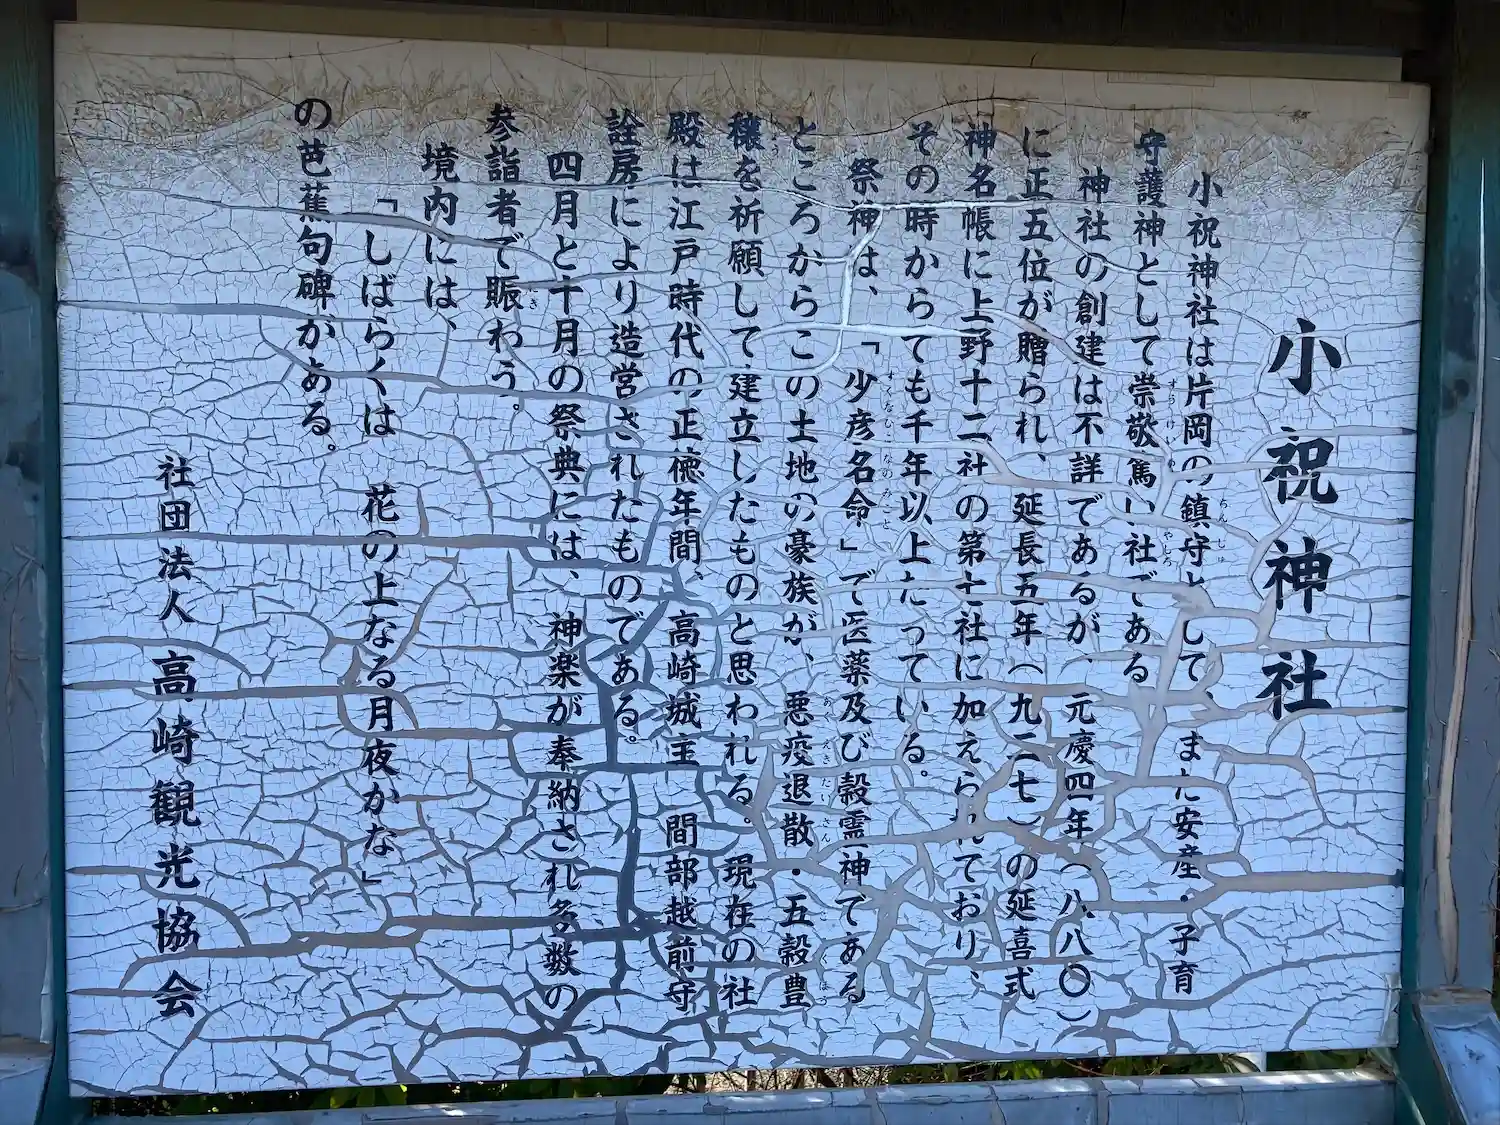 小祝神社
小祝神社は片岡の鎮守として、また安産・子育
守護神として崇敬篤い社である
神社の創建は不詳であるが、元慶四年（八八〇）
に正五位が贈られ、延長五年（九二七）の延喜式
神名帳に上野十二社の第七社に加えられており、
その時からでも千年以上たっている。
祭神は、「少彦名命」で医薬及び穀霊神である
ところからこの土地の豪族が、悪疫退散・五穀豊
穣を祈願して建立したものと思われる。現在の社
殿は江戸時代の正徳年間、高崎城主 間部越前守
詮房により造営されたものである。
四月と十月の祭典には、神楽が奉納され多数の
参詣者で賑わう。
境内には、
「しばらくは 花の上なる月夜かな」
の芭蕉句碑がある。
社団法人 高崎観光協会